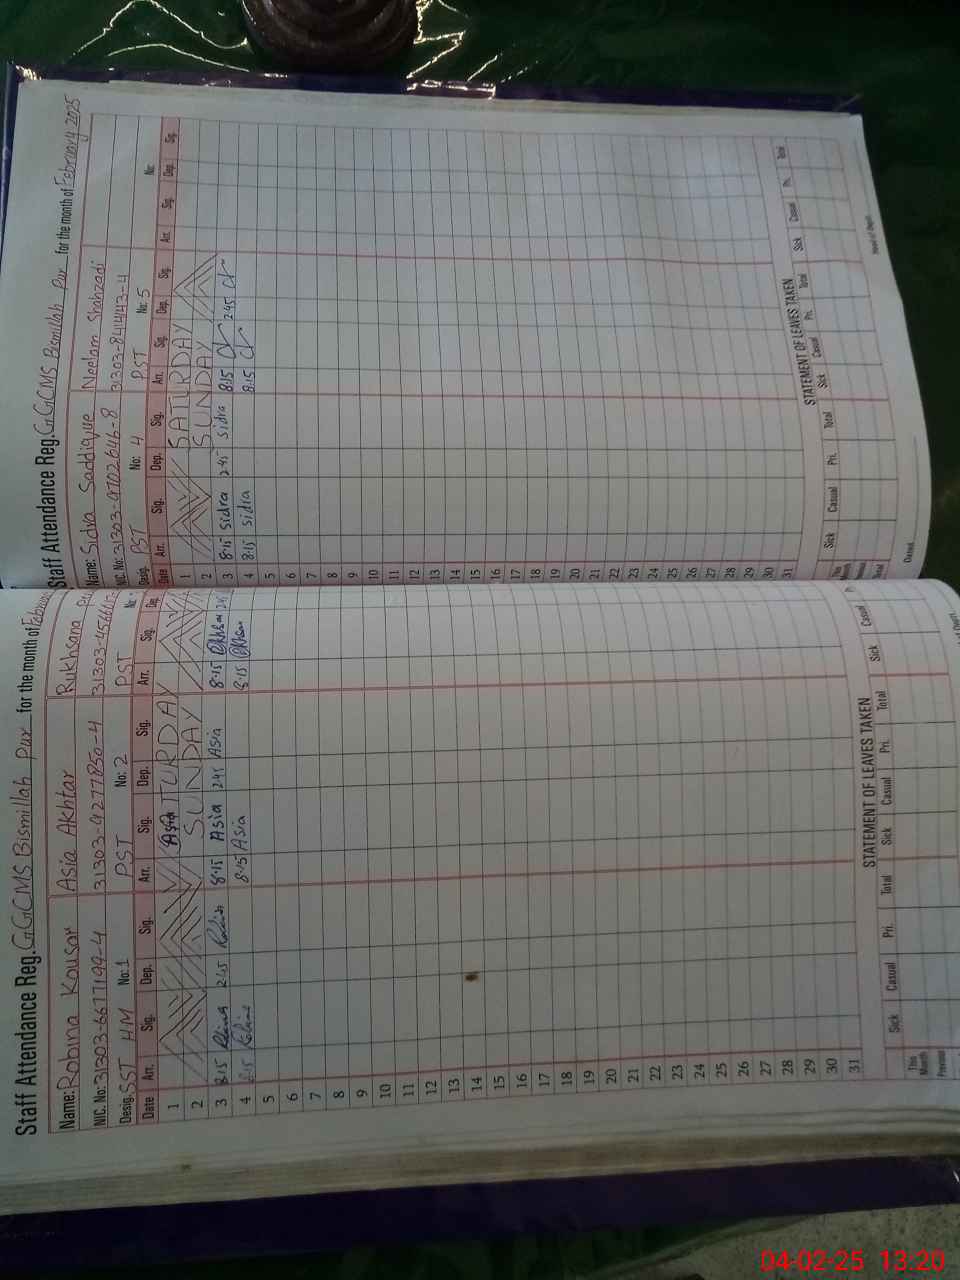 Staff Attendance Reg. GGCMS Bismillah Pur for the month of
Name: Robina Kousar Asia Akhtar Rukhsana
NIC. No: 31303-6677199-4 31303-4277850-4
Desig. SST HM No: 1 PST No: 2 PST No.
Date Arr. Sig. Dep. Sig. Arr. Sig. Dep. Sig. Arr. Sig. Dep.
1 SATURDAY
2 SUNDAY
3 8.15 2.45 8.15 Asia 2.45 Asia 8.15
4 8.15 8.15 Asia 8.15
5
6
7
8
9
10
11
12
13
14
15
16
17
18
19
20
21
22
23
24
25
26
27
28
29
30
31
STATEMENT OF LEAVES TAKEN
Sick Casual Pri. Total Sick Casual Pri. Total Sick Casual
This Month
Previous
Staff Attendance Reg. GGCMS Bismillah Pur for the month of February 2025
Name: Sidra Saddique Neelam Shahzadi
NIC. No: 31303-9702646-8 31303-8414143-4
Desig. PST No: 4 PST No: 5 No:
Date Arr. Sig. Dep. Sig. Arr. Sig. Dep. Sig. Arr. Sig. Dep. Sig.
1 SATURDAY
2 SUNDAY
3 8.15 sidra 2.45 sidra 8.15 2.45
4 8.15 sidra 8.15
5
6
7
8
9
10
11
12
13
14
15
16
17
18
19
20
21
22
23
24
25
26
27
28
29
30
31
STATEMENT OF LEAVES TAKEN
Sick Casual Pri. Total Sick Casual Pri. Total Sick Casual Pri. Total
This Month
Total
Dated
Head of Deptt.
04-02-25 13:20